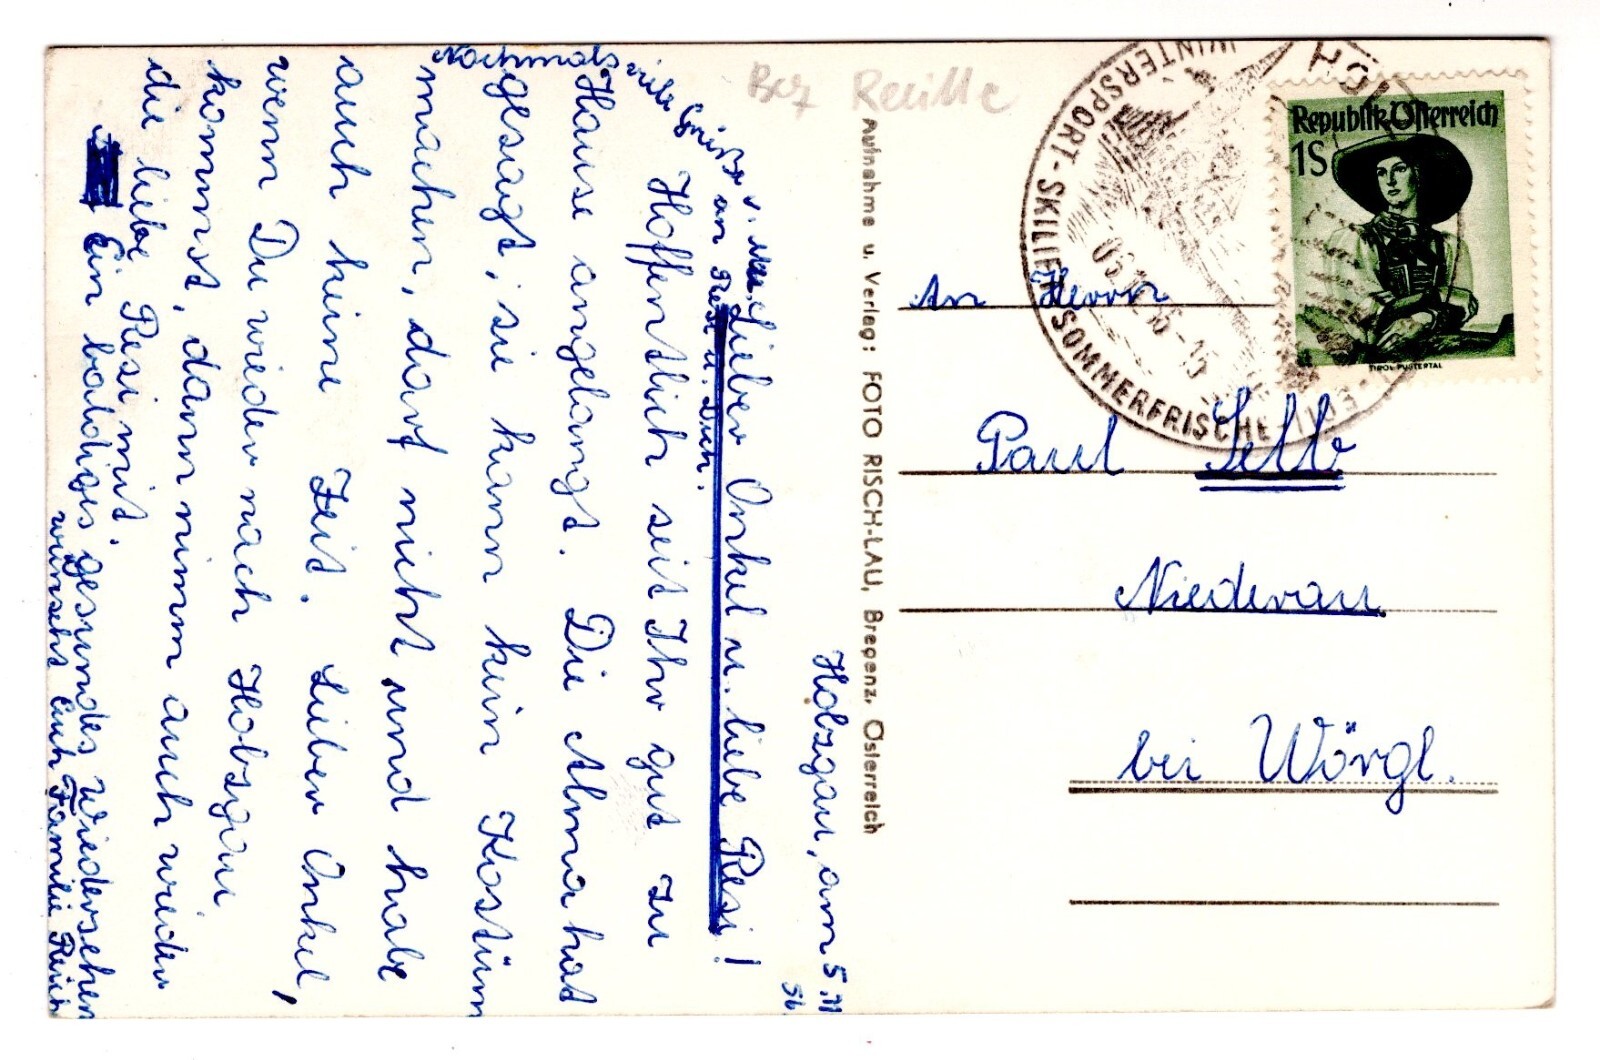 Holzgau, am 5.11
56
Lieber Onkel u. liebe Resi!
Hoffentlich seit Ihr gut zu
Hause angelangt. Die Alma hat
gesagt, sie kann kein Kostüm
machen, darf nicht und habe
auch keine Zeit. Lieber Onkel,
wenn Du wieder nach Holzgau
kommst, dann nimm auch wieder
die liebe Resi mit.
Ein baldiges gesundes Wiedersehen
wünscht Euch Familie
Nochmals viele Grüße v.
an Resi u. Dich.
Aufnahme u. Verlag: FOTO RISCH-LAU, Bregenz, Österreich
Bez
WINTERSPORT - SKILIFT
SOMMERFRISCHE
Republik Österreich
1S
TIROL PUSTERTAL
An Herrn
Paul Selb
Niederau
bei Wörgl.